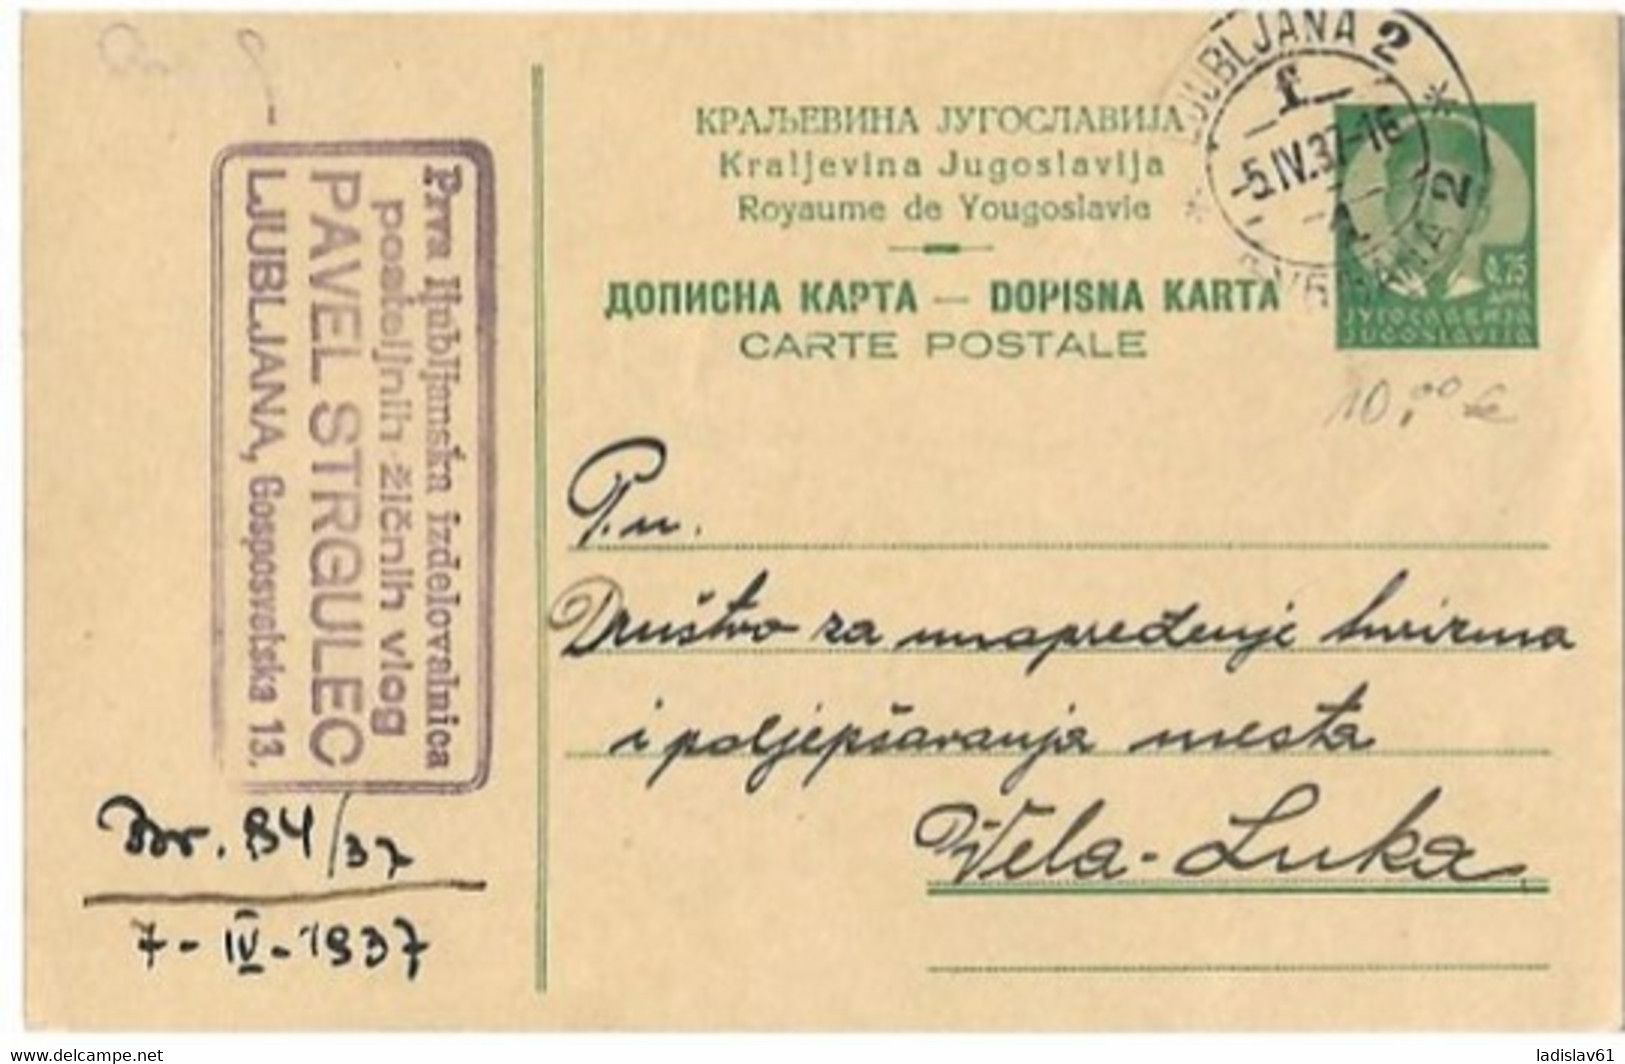 Prva ljubljanska izdelovalnica
posteljnih žičnih vlog
PAVEL STRGULEC
LJUBLJANA, Gosposvetska 13.
Br. 84/37
7-IV-1937
КРАЉЕВИНА ЈУГОСЛАВИЈА
Kraljevina Jugoslavija
Royaume de Yougoslavie
ДОПИСНА КАРТА — DOPISNA KARTA
CARTE POSTALE
LJUBLJANA 2
f
-5.IV.37-16
0.75
ЈУГОСЛАВИЈА
JUGOSLAVIJA
10,00 €
P.n.
Društvo za unapređenje turizma
i poljepšavanja mesta
Vela-Luka
www.delcampe.net
ladislav61